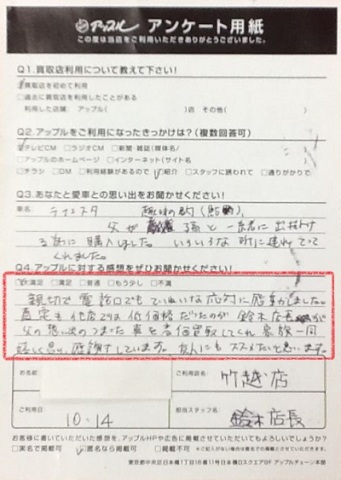 アップル アンケート用紙
この度は当店をご利用いただきありがとうございました。
Q1.買取店利用について教えて下さい!
買取店を初めて利用
過去に買取店を利用したことがある
利用した店舗 アップル( )店 その他( )
Q2.アップルをご利用になったきっかけは?(複数回答可)
テレビCM ラジオCM 新聞・雑誌(媒体名/ )
アップルのホームページ インターネット(サイト名 )
チラシ DM 利用経験があるので 紹介 スタッフに誘われて 通りがかりで
Q3.あなたと愛車との思い出をお聞かせください!
車名
父が 孫と一緒に出掛け
る為に購入しました。いろいろな所に連れてって
くれました。
Q4.アップルに対する感想をぜひお聞かせください!
大満足 満足 普通 もう少し 不満
親切で電話口でもていねいな応対に感動しました。
査定も他店では低価格だったが鈴木店長が
父の思い出のつまった車を高価買取してくれ家族一同
嬉しく思い、感謝しています。友人にもススメたいと思います。
お名前
ご利用店名 竹越店
ご利用日 10.14
担当スタッフ名 鈴木店長
お客様に書いていただいた感想を、アップルHPや広告に掲載させていただいてもよろしいでしょうか?
実名で掲載可 匿名なら掲載可
東京都中央区日本橋1丁目 アップルチェーン本部